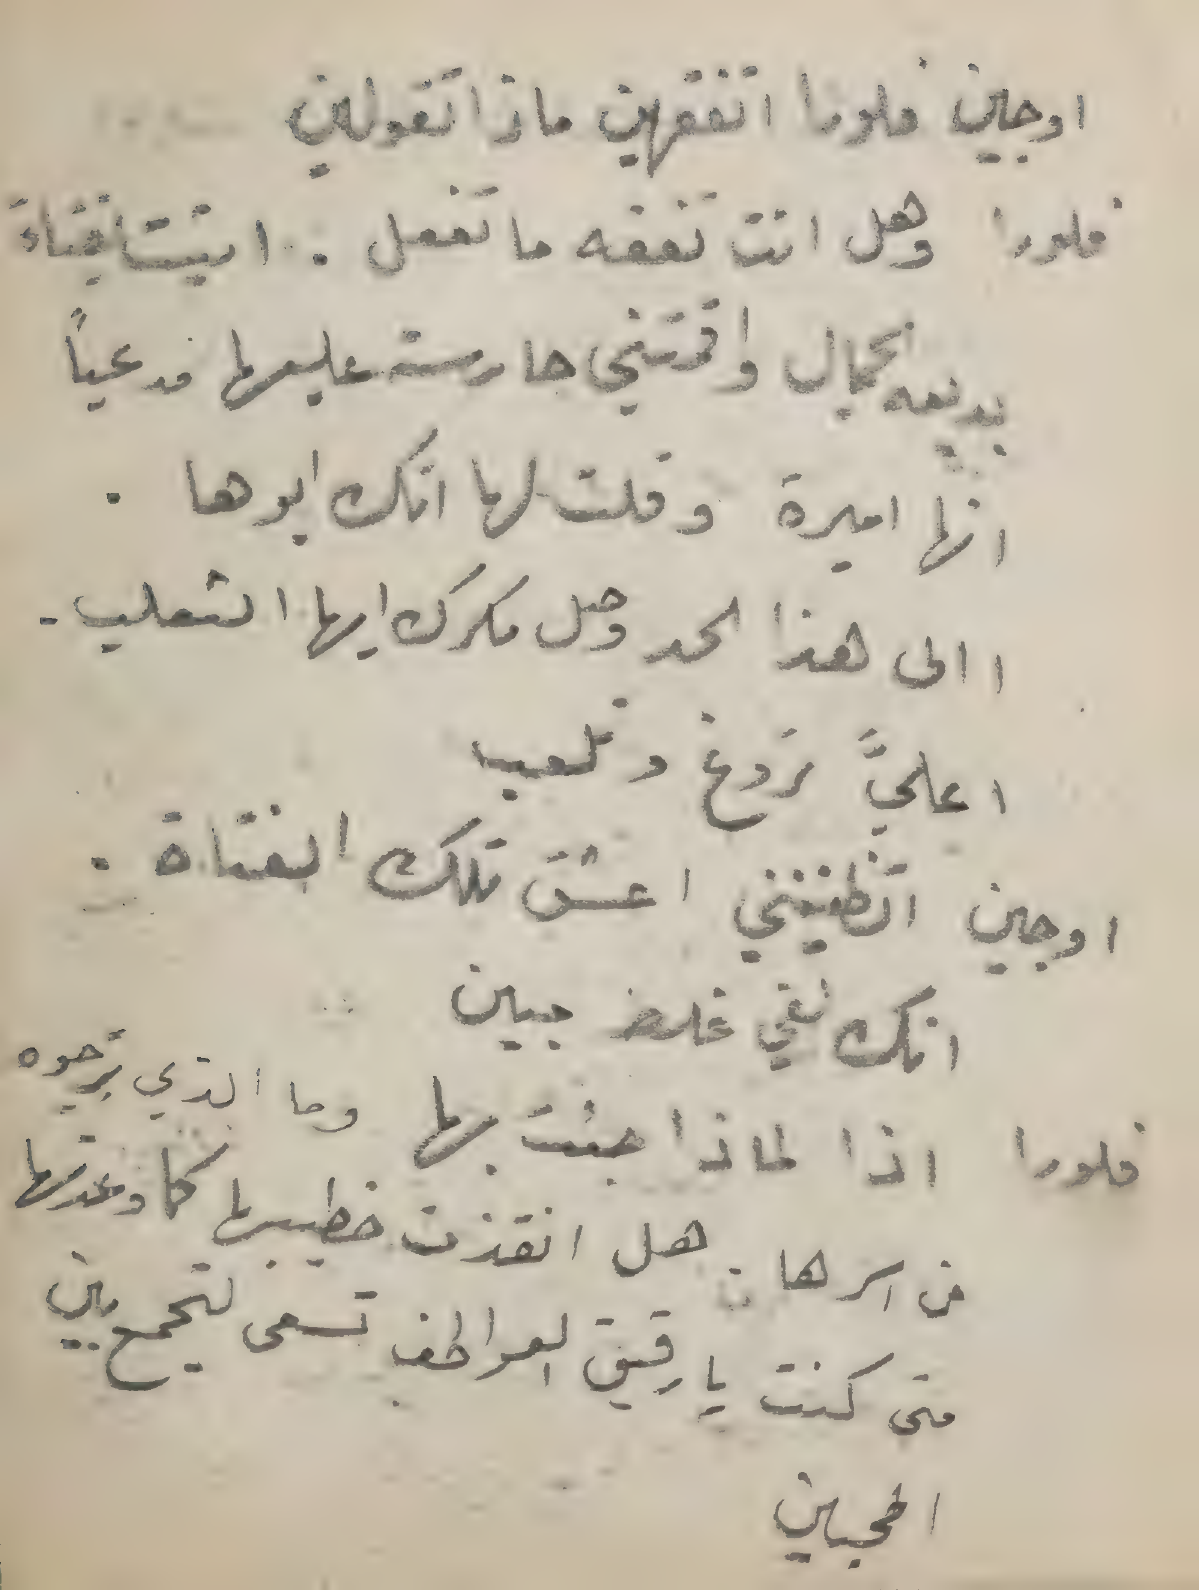 اوجين فلورا اتفقهين ماذا تقولين
فلورا وهل انت تفقه ما تفعل . اتيت بفتاة
بديعه الجمال واقمتني حارسة عليها مدعياً
انها اميرة وقلت لها انك ابوها .
االى هذا الحد وصل مكرك ايها الثعلب .
اعليَّ تروغ وتلعب
اوجين اتظنينني اعشق تلك الفتاة .
انك لفي غلط مبين
فلورا اذا لماذا جئت بها وما الذي ترجوه
من اسرها هل انقذت خطيبها كما وعدتها
متى كنت يا رقيق العواطف تسعى لتجمع بين
المحبين